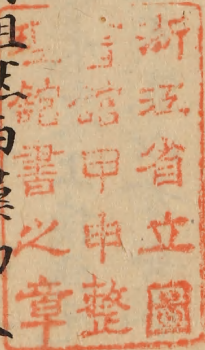 浙江省立圖
書館甲申整
理館書之章